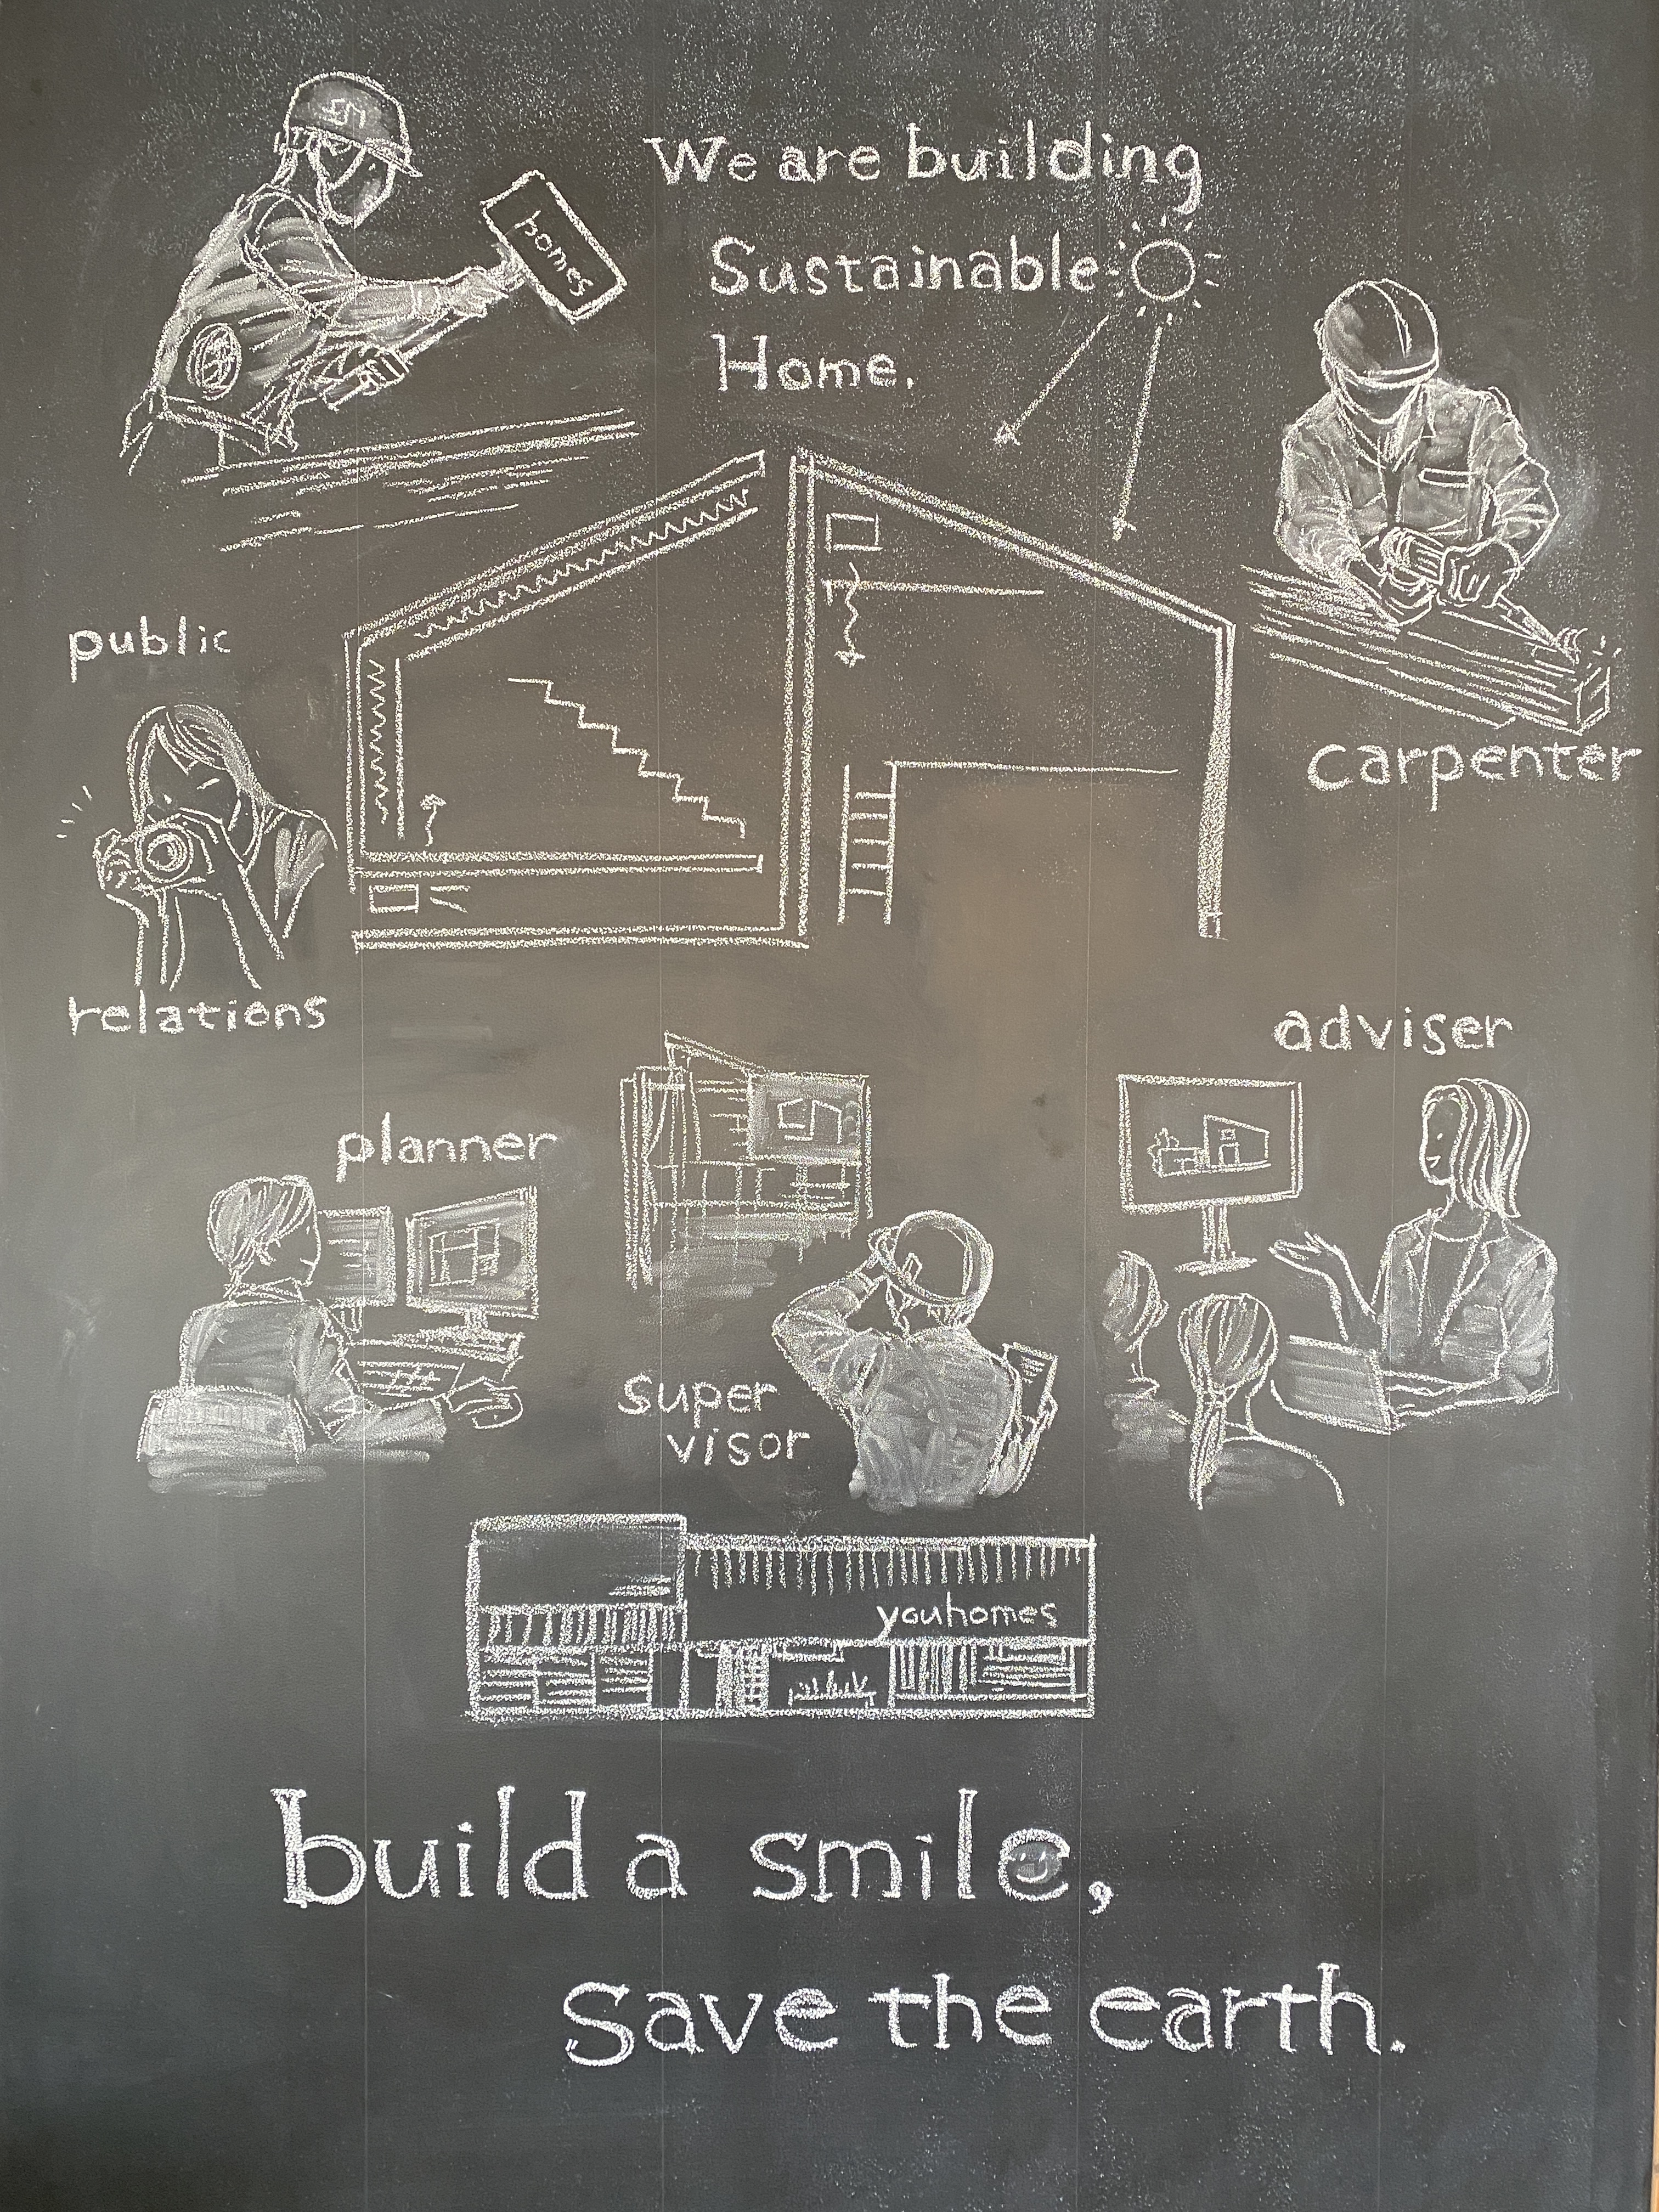 We are building
Sustainable
Home.
homes
public
relations
carpenter
adviser
planner
super
visor
youhomes
build a smile,
save the earth.